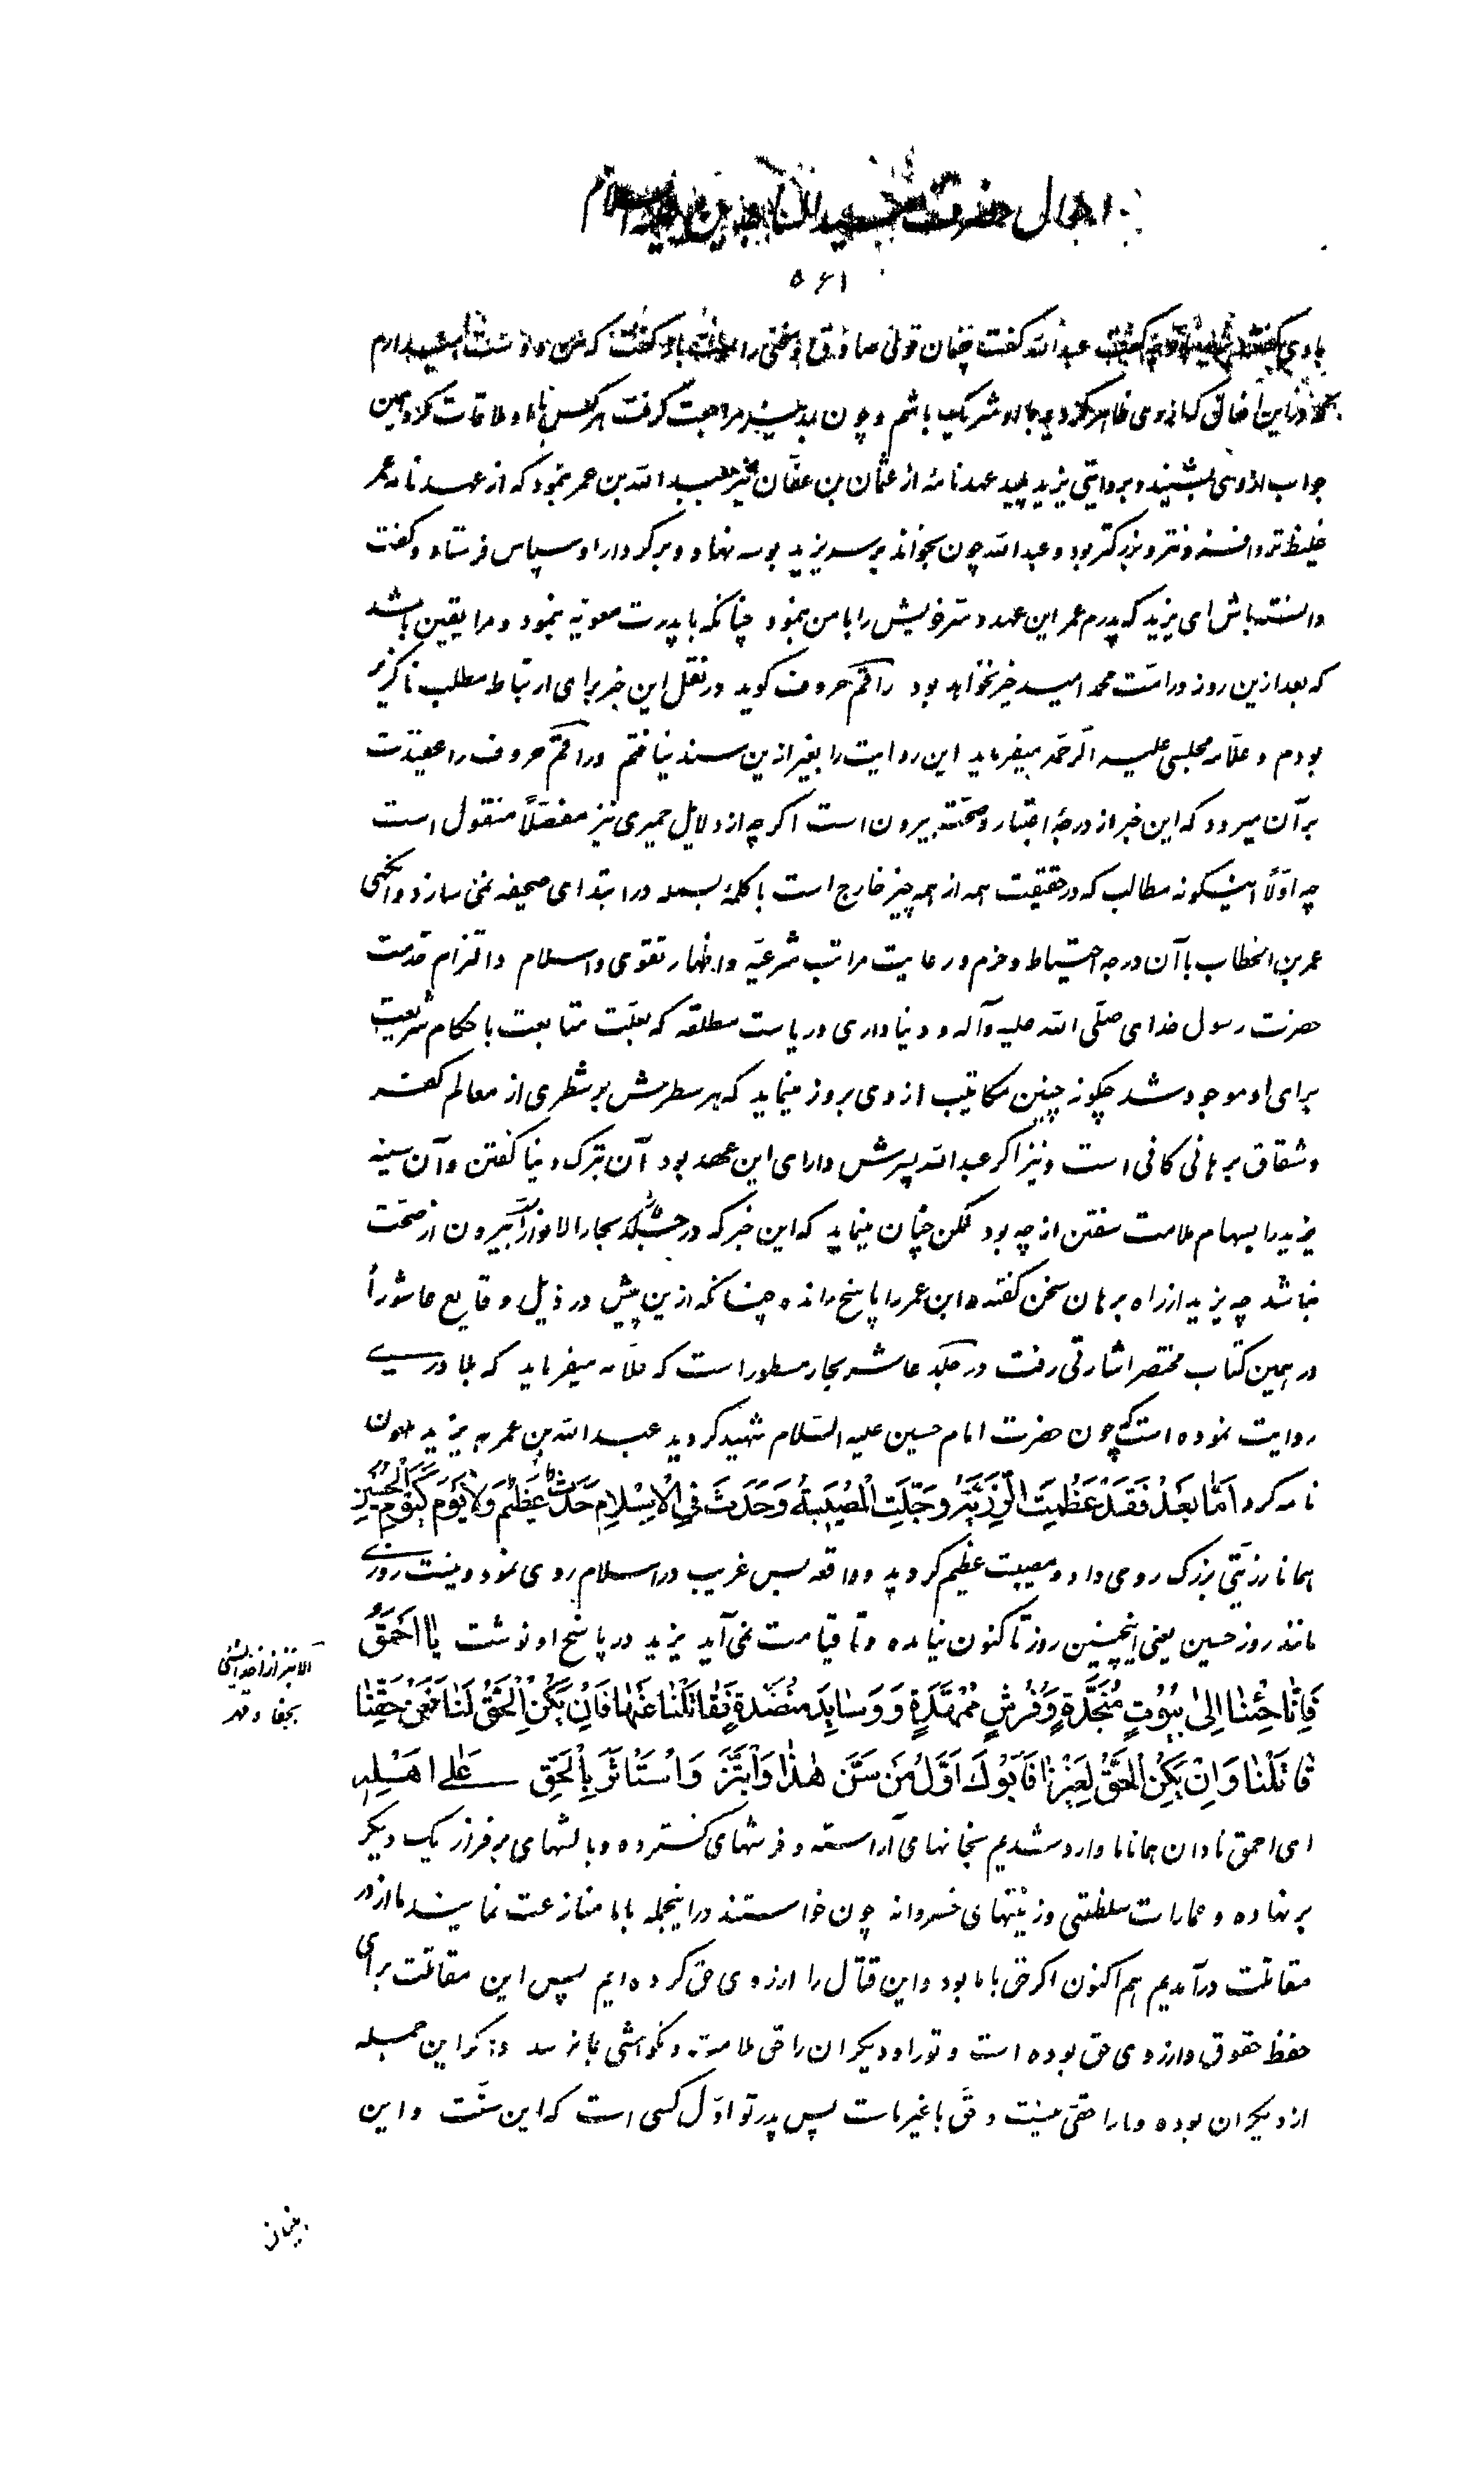 احوال حضرت سید الساجدین علیه السلام
۵۶۱
باوی عبدالله گفت چنان قولی صادق و سخنی را باوی گفت که من دوست میدارم
در این افعال که از وی ظاهر گردید با او شریک باشم و چون بمدینه مراجعت گرفت هر کس با او ملاقات کرد همین
جواب از وی بشنید و بروایتی یزید پلید عهدنامهٔ از عثمان بن عفّان نیز بعبد الله بن عمر نمود که از عهدنامه عمر
غلیظ‌تر و افسنده‌تر و بزرگتر بود و عبدالله چون بخواند بر سر یزید بوسه نهاد و بر کردار او سپاس فرستاد و گفت
دانسته باش ای یزید که پدرم عمر این عهد و سرّ خویش را با من بنمود چنانکه با پدرت معویه بنمود و مرا یقین باشد
که بعد ازین روز در امّت محمد امید خیر نخواهد بود راقم حروف گوید در نقل این خبر برای ارتباط مطلب ناگزیر
بودم و علّامه مجلسی علیه الرّحمه میفرماید این روایت را بغیر ازین سند نیافتم و راقم حروف را عقیدت
بر آن میرود که این خبر از درجهٔ اعتبار و صحّت بیرون است اگر چه از دلایل حمیری نیز مفصّلاً منقول است
چه اوّلاً اینگونه مطالب که در حقیقت همه از همه چیز خارج است با کلمهٔ بسمله در ابتدای صحیفه نمی سازد و آنگهی
عمر بن الخطاب با آن درجه احتیاط و حزم و رعایت مراتب شرعیّه و اظهار تقوی و اسلام و التزام خدمت
حضرت رسول خدای صلّی الله علیه وآله و دنیاداری و ریاست مطلقه که بعلّت متابعت باحکام شریعت
برای او موجود شد چگونه چنین مکاتیب از وی بروز مینماید که هر سطرش بر شطری از معالم کفر
و شقاق برهانی کافی است و نیز اگر عبدالله پسرش دارای این عهد بود آن ترک دنیا گفتن و آن سینه
یزید را بسهام ملامت سفتن از چه بود لکن چنان مینماید که این خبر که در جلد بحار الانوار است بیرون از صحّت
نباشد چه یزید از راه برهان سخن گفته و ابن عمر را پاسخ رانده چنانکه ازین پیش در ذیل وقایع عاشورا
در همین کتاب مختصر اشارتی رفت در جلد عاشر بحار مسطور است که علّامه میفرماید که بلاذری
روایت نموده است که چون حضرت امام حسین علیه السّلام شهید گردید عبدالله بن عمر به یزید ملعون
نامه کرد اَمّا بَعدُ فَقَدْ عَظُمَتِ الرَّزِیَّةُ وَجَلَّتِ الْمُصیبَةُ وَحَدَثَ فِی الْاِسْلامِ حَدَثٌ عَظیمٌ وَلا یَوْمَ کَیَوْمِ الْحُسَیْنِ
همانا رزیّتی بزرگ روی داد و مصیبت عظیم گردید و واقعه بس غریب در اسلام روی نمود و نیست روزی
مانند روز حسین یعنی اینچنین روز تاکنون نیامده و تا قیامت نمی آید یزید در پاسخ او نوشت یا اَحْمَقُ
فَاِنّا جِئْنا اِلی بُیُوتٍ مُنَجَّدَةٍ وَفُرُشٍ مُمَهَّدَةٍ وَوَسایِدَ مُنَضَّدَةٍ فَقاتَلْنا عَنْها فَاِنْ یَکُنِ الْحَقُّ لَنا فَعَنْ حَقِّنا
قاتَلْنا وَاِنْ یَکُنِ الْحَقُّ لِغَیْرِنا فَاَبُوکَ اَوَّلُ مَنْ سَنَّ هٰذا وَابْتَزَّ وَاسْتَاْثَرَ بِالْحَقِّ عَلی اَهْلِهِ
ای احمق نادان همانا ما وارد شدیم بخانهای آراسته و فرشهای گسترده و بالشهای بر فراز یک دیگر
بر نهاده و عمارات سلطنتی و زینتهای خسروانه چون خواستند در اینجمله با ما منازعت نمایند ما از در
مقاتلت درآمدیم هم اکنون اگر حق با ما بود و این قتال را از روی حق کرده ایم پس این مقاتلت برای
حفظ حقوق و از روی حق بوده است و تو را و دیگران را حق ملامت و نکوهشی بما نرسد و اگر این جمله
از دیگران بوده و ما را حقّی نیست و حقّ با غیر ماست پس پدر تو اوّل کسی است که این سنّت و این
الابتزاز
بجفا و قهر
بنیان